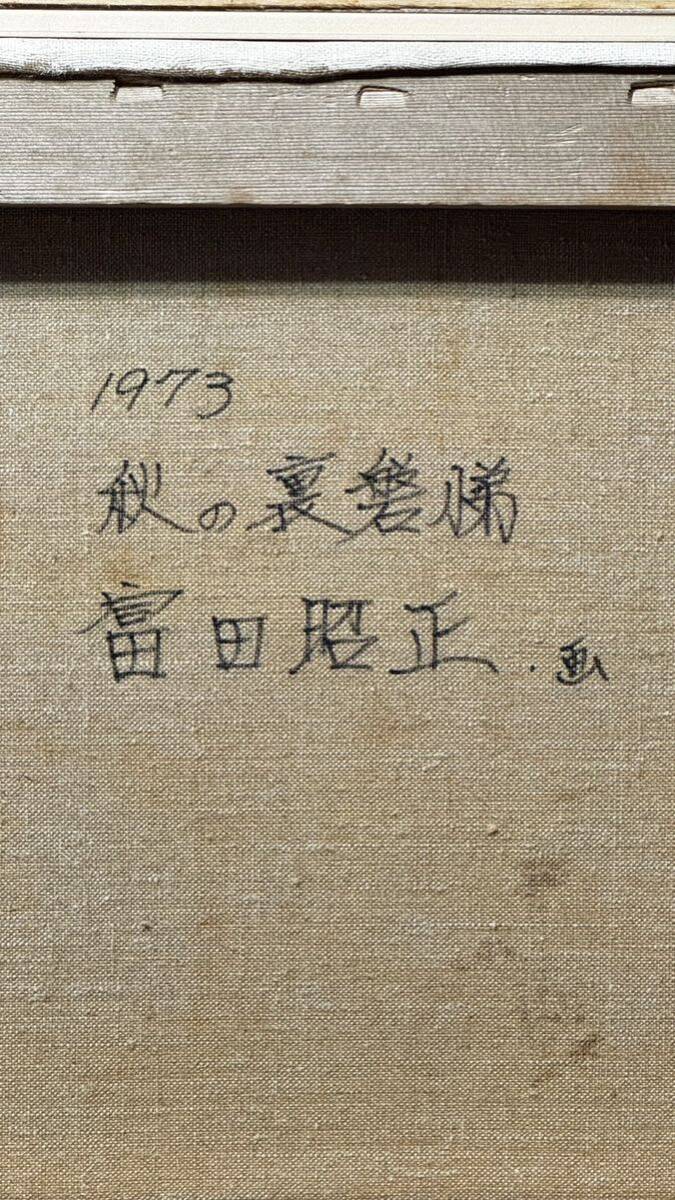 1973
秋の裏磐梯
富田昭正・画